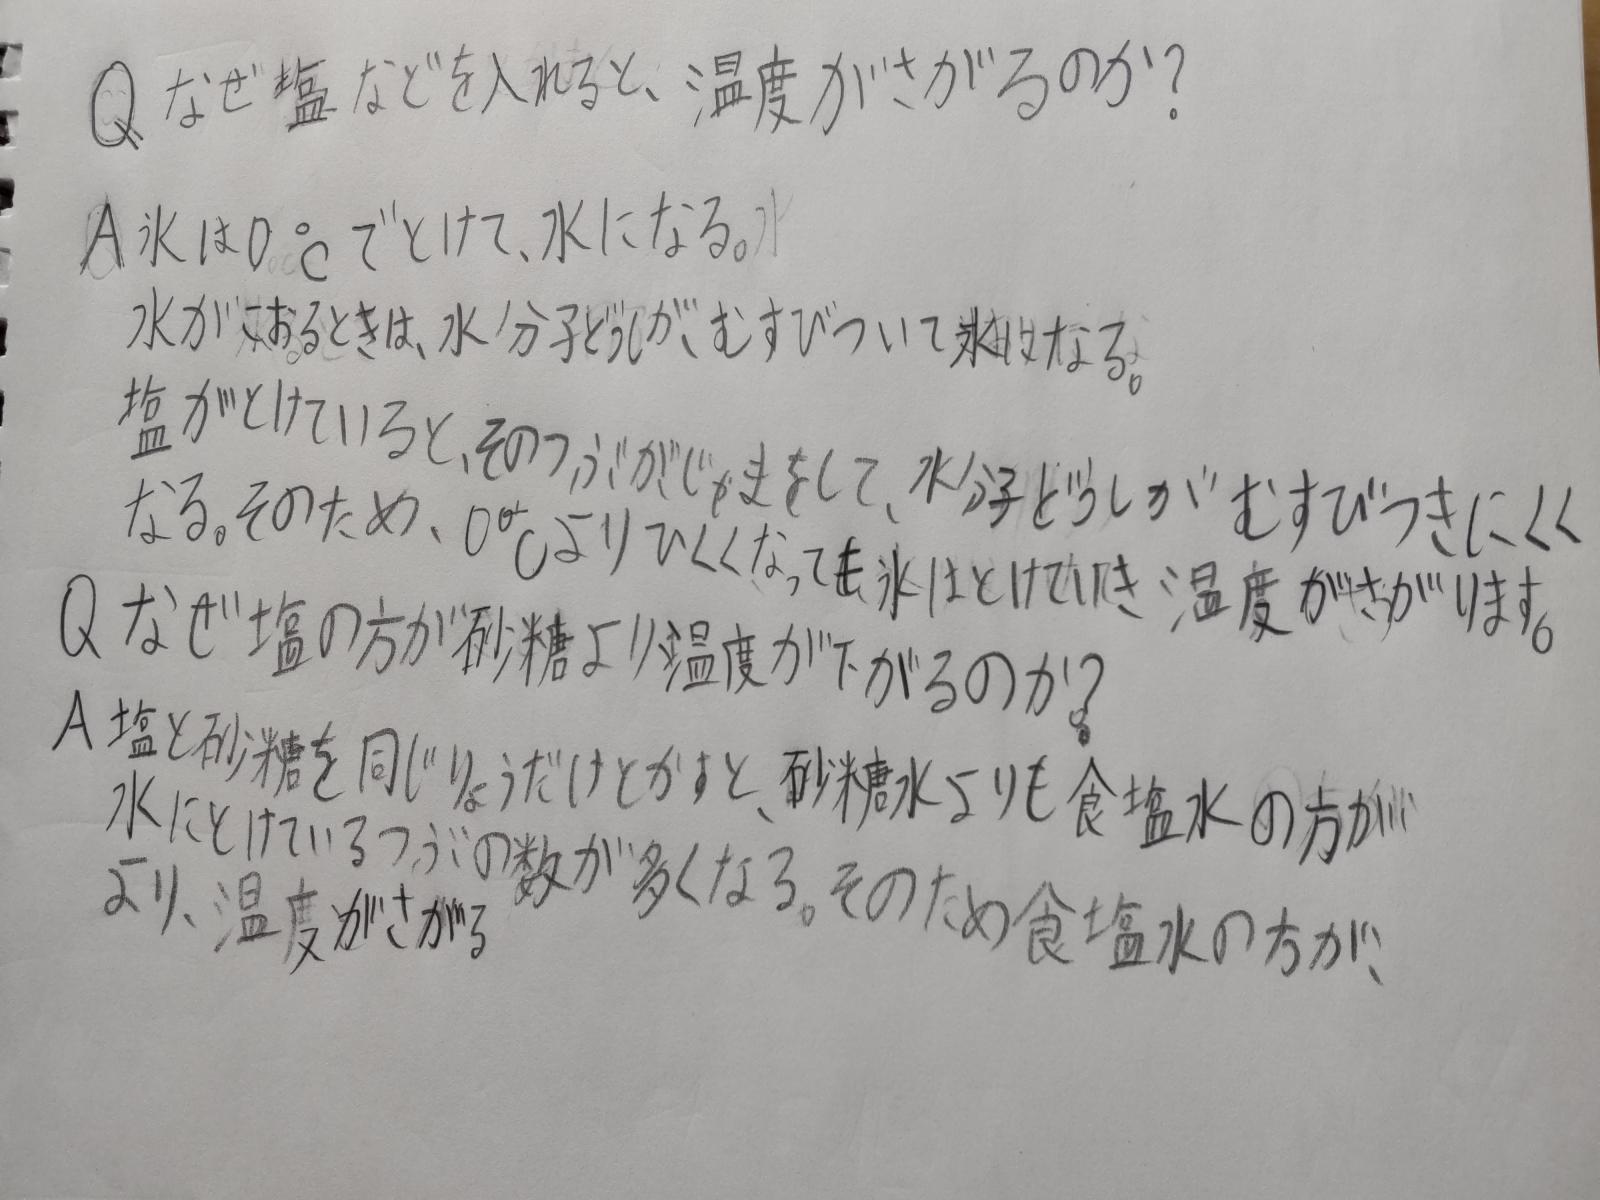 Q なぜ塩などを入れると、温度がさがるのか?
A 氷は0℃でとけて、水になる。
水がこおるときは、水分子どうしが、むすびついて氷になる。
塩がとけていると、そのつぶがじゃまをして、水分子どうしがむすびつきにくく
なる。そのため、0℃よりひくくなっても氷はとけていき温度がさがります。
Q なぜ塩の方が砂糖より温度が下がるのか?
A 塩と砂糖を同じりょうだけとかすと、砂糖水よりも食塩水の方が
水にとけているつぶの数が多くなる。そのため食塩水の方が、
より、温度がさがる